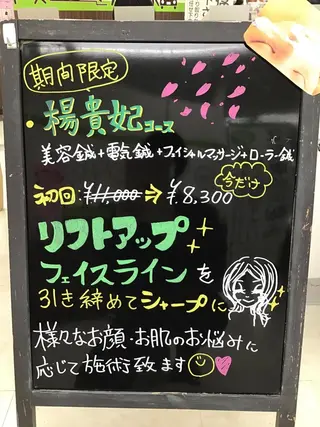 期間限定
・楊貴妃コース
美容鍼+電気鍼+フェイシャルマッサージ+ローラー鍼
初回:¥11,000→¥8,300
今だけ
リフトアップ
フェイスラインを
引き締めてシャープに
様々なお顔・お肌のお悩みに
応じて施術致します